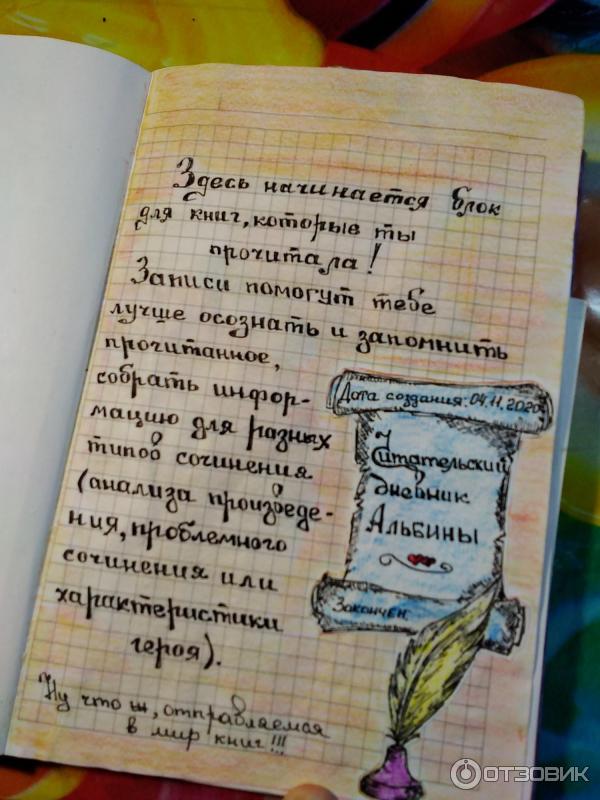 Здесь начинается блок
для книг, которые ты
прочитала!
Записи помогут тебе
лучше осознать и запомнить
прочитанное,
собрать инфор-
мацию для разных
типов сочинения
(анализа произведе-
ния, проблемного
сочинения или
характеристики
героя).
Дата создания: 04.11.2020
Читательский
дневник
Альбины
Закончен
Ну что ж, отправляемся
в мир книг!!!
ОТЗОВИК